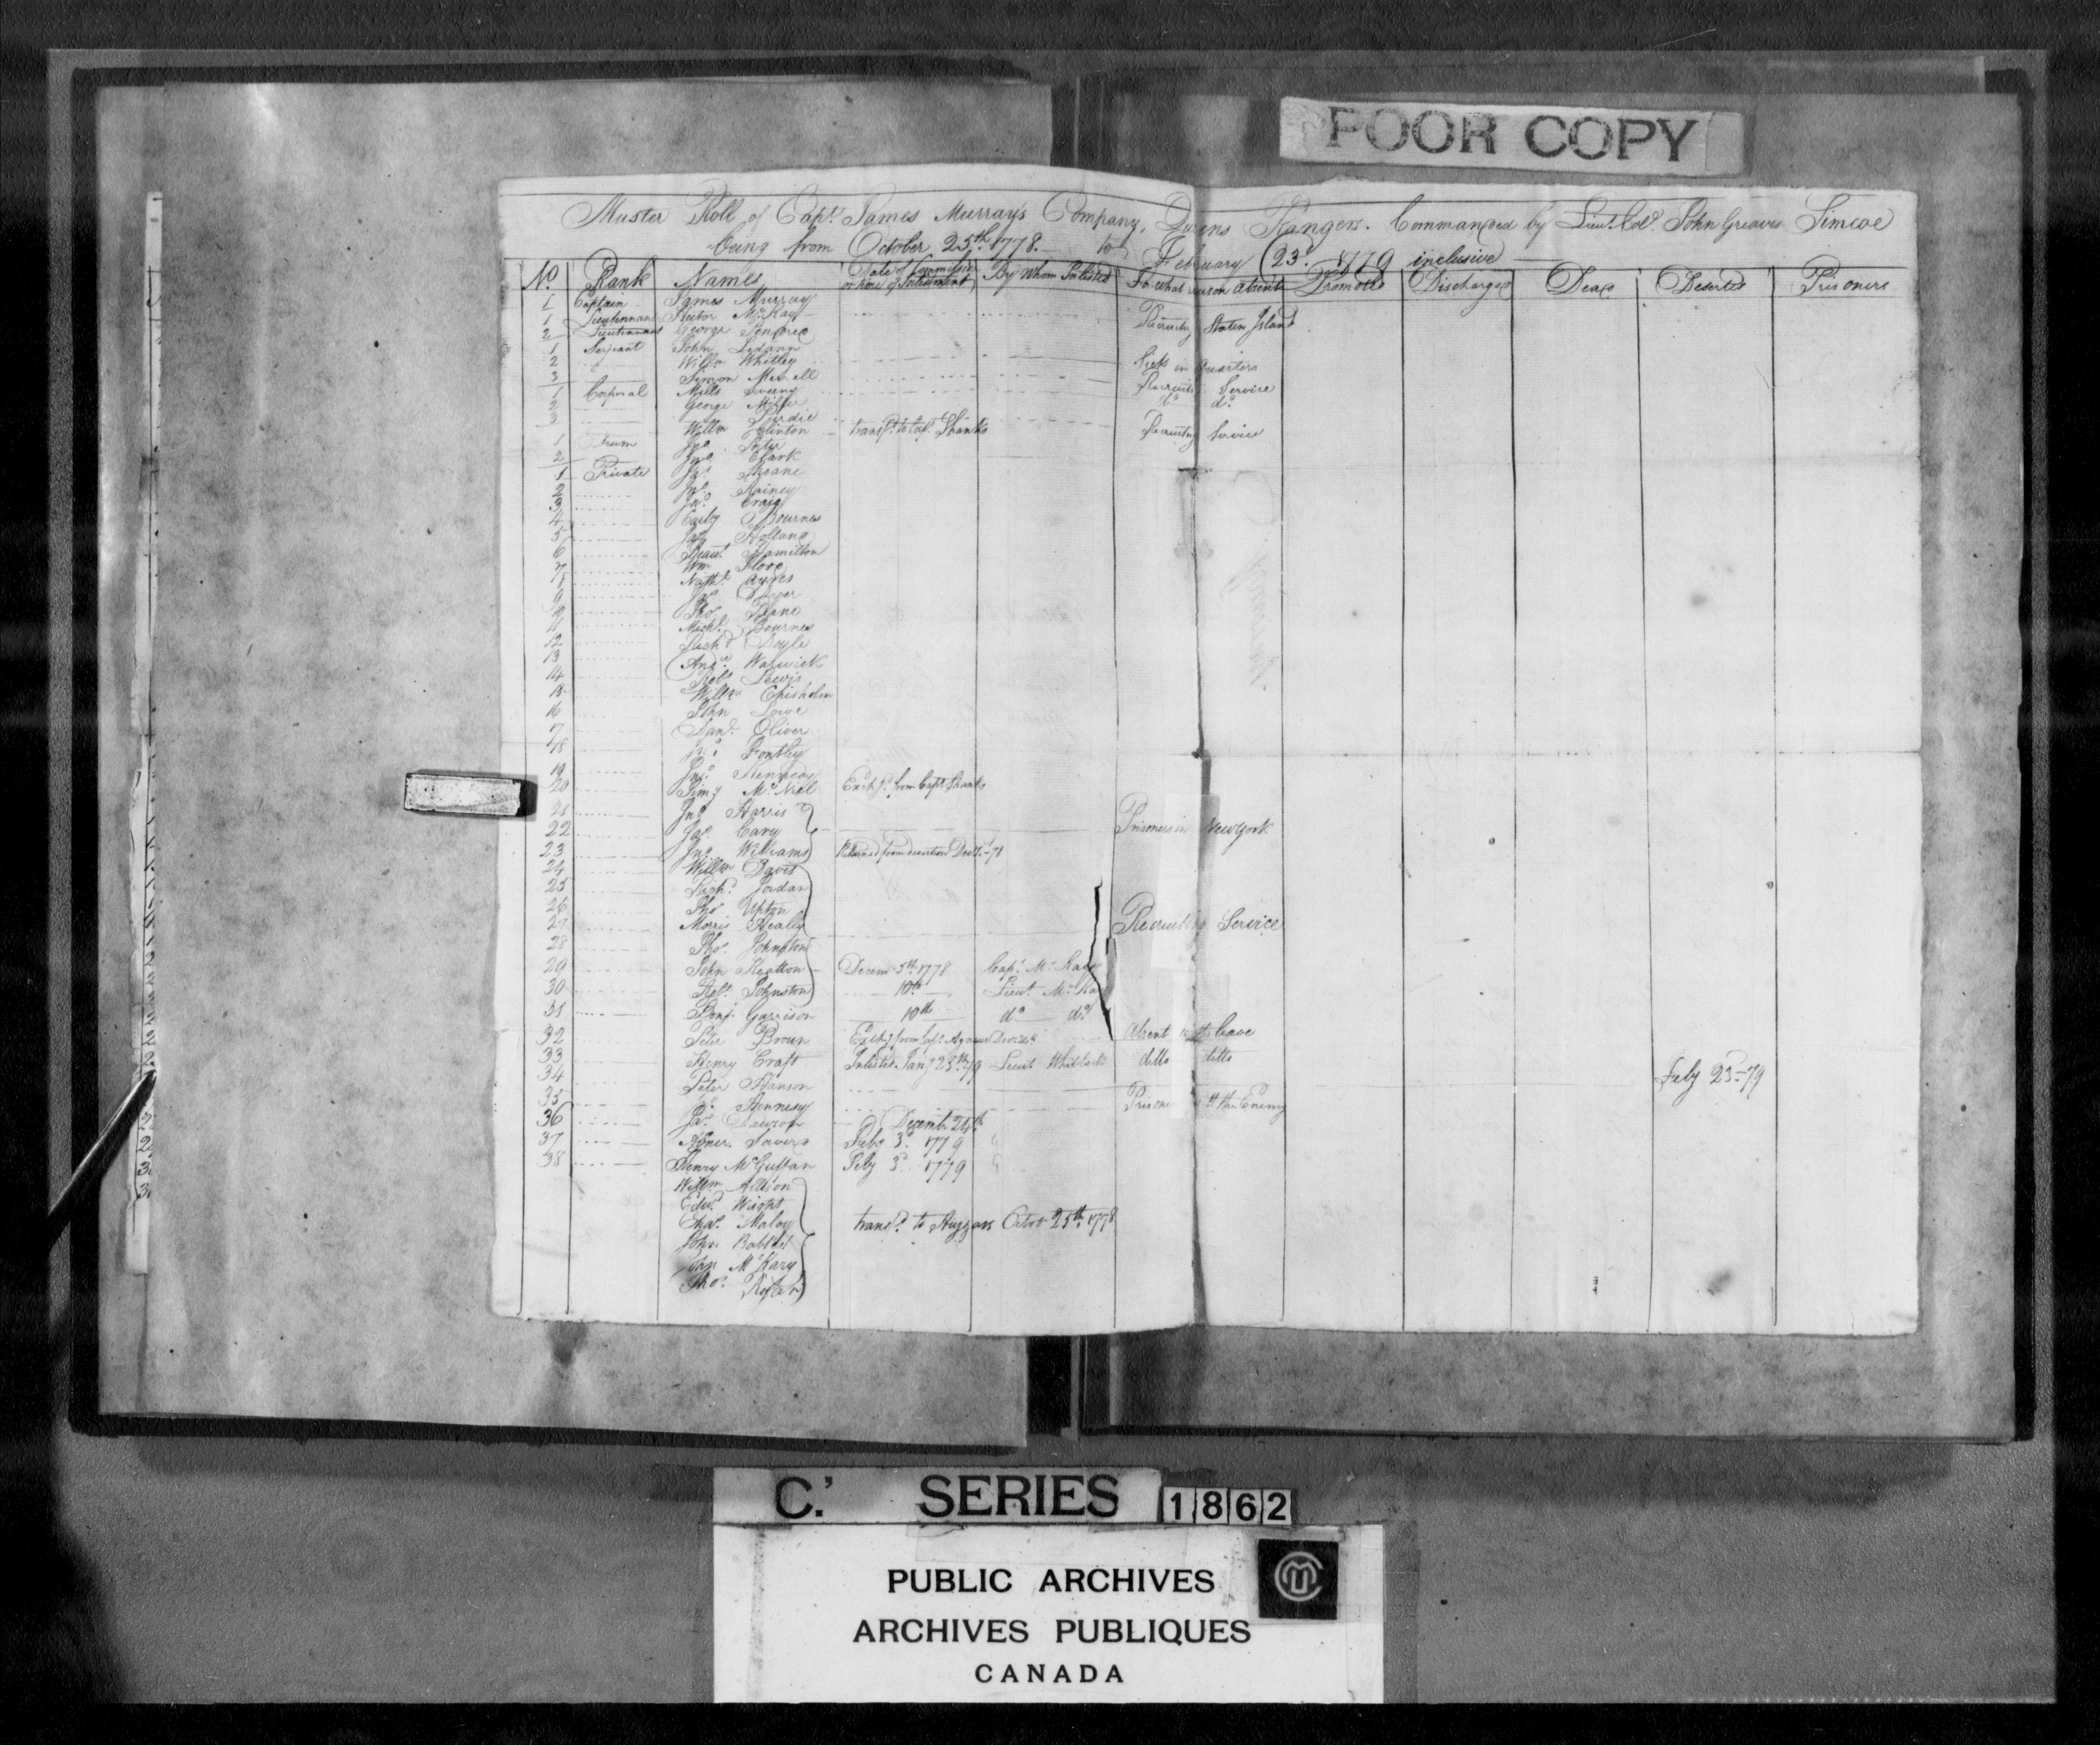 POOR COPY
Muster Roll of Capt. James Murray's Company, Queens Rangers. Commanded by Lieut. Coll. John Graves Simcoe
being from October 25th. 1778. to February 23d. 1779 inclusive
No. Rank Names Date of Commission or time of Inlistment By Whom Inlisted For what reason Absent Promoted Discharged Dead Deserted Prisoners
1 Captain James Murray
1 Lieutennant McKay
2 Lieutennant George Recruitg Staten Island
1 Serjeant John
2 Willm Whitley Sick in Quarters
3 Simon Recruitg Service
1 Corporal Mills Sweeny do do
2 George Miller
3 Purdie Recruitg Service
Willm Hinton transfd. to Capt. Shanks
1 Drum Jno.
2 Jno. Clark
1 Private Jas. Sloane
2 Jno. Rainey
3 Jno. Craig
4 Bournes
5 Jas. Holland
6 Hamilton
7 Wm
8 Nathl. Ayres
9 Dwyer
10 Thos. Bane
11 Michl. Bournes
12 Richd. Doyle
13 Andw. Warwick
14 Robt. Lewis
15 Willm Chisholm
16 John Lowe
17 Danl. Oliver
18 Jno.
19 Jno. Kennedy
20 McNiel Exchd. from Capt. Shanks
21 Jno. Harris
22 Jas. Cary Prisoners in New York
23 Jno. Williams Returned from desertion Decr. -78
24 Willm Davis
25 Richd. Jordan
26 Thos. Upton
27 Morris Healey Recruiting Service
28 Thos. Johnston
29 John Heatton Decemr. 5th. 1778 Capt. McKay
30 Robt. Johnston 10th Lieut. McKay
31 Benj. Garrison 10th do do
32 Peter Brown Exchd from Capt. Agnew Absent with leave
33 Henry Craft Inlisted Jany 25th 79 Lieut. ditto ditto
34 Peter Hanson Feby 23d -79
35 Hennesy Prisoner with the Enemy
36 Jas. Decembr 24th
37 Abner Feby 3d. 1779 "
38 Henry McGuffan Feby 3d. 1779 "
Willm Allison
Edwd Wright
Chas. Maloy transfd. to Huzzars Octor 25th. 1778
John
McKary
Thos.
C. SERIES 1862
PUBLIC ARCHIVES
ARCHIVES PUBLIQUES
CANADA